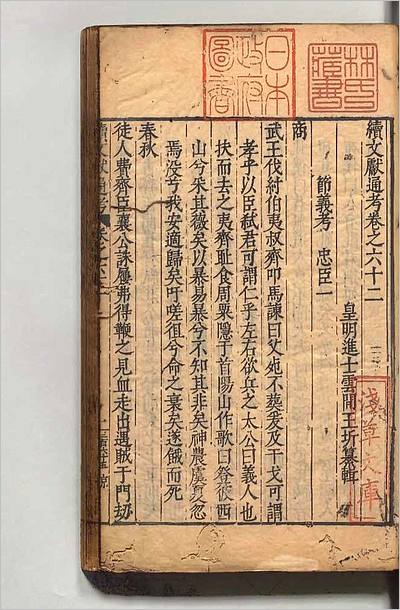 林氏藏書
日本政府圖書
淺草文庫
續文獻通考卷之六十二
皇明進士雲間王圻纂輯
節義考 忠臣一
商
武王伐紂伯夷叔齊叩馬諫曰父死不葬爰及干戈可謂
孝乎以臣弒君可謂仁乎左右欲兵之太公曰義人也
扶而去之夷齊耻食周粟隱于首陽山作歌曰登彼西
山兮采其薇矣以暴易暴兮不知其非矣神農虞夏忽
焉没兮我安適歸矣吁嗟徂兮命之衰矣遂餓而死
春秋
徒人費齊臣襄公誅屨弗得鞭之見血走出遇賊于門刼